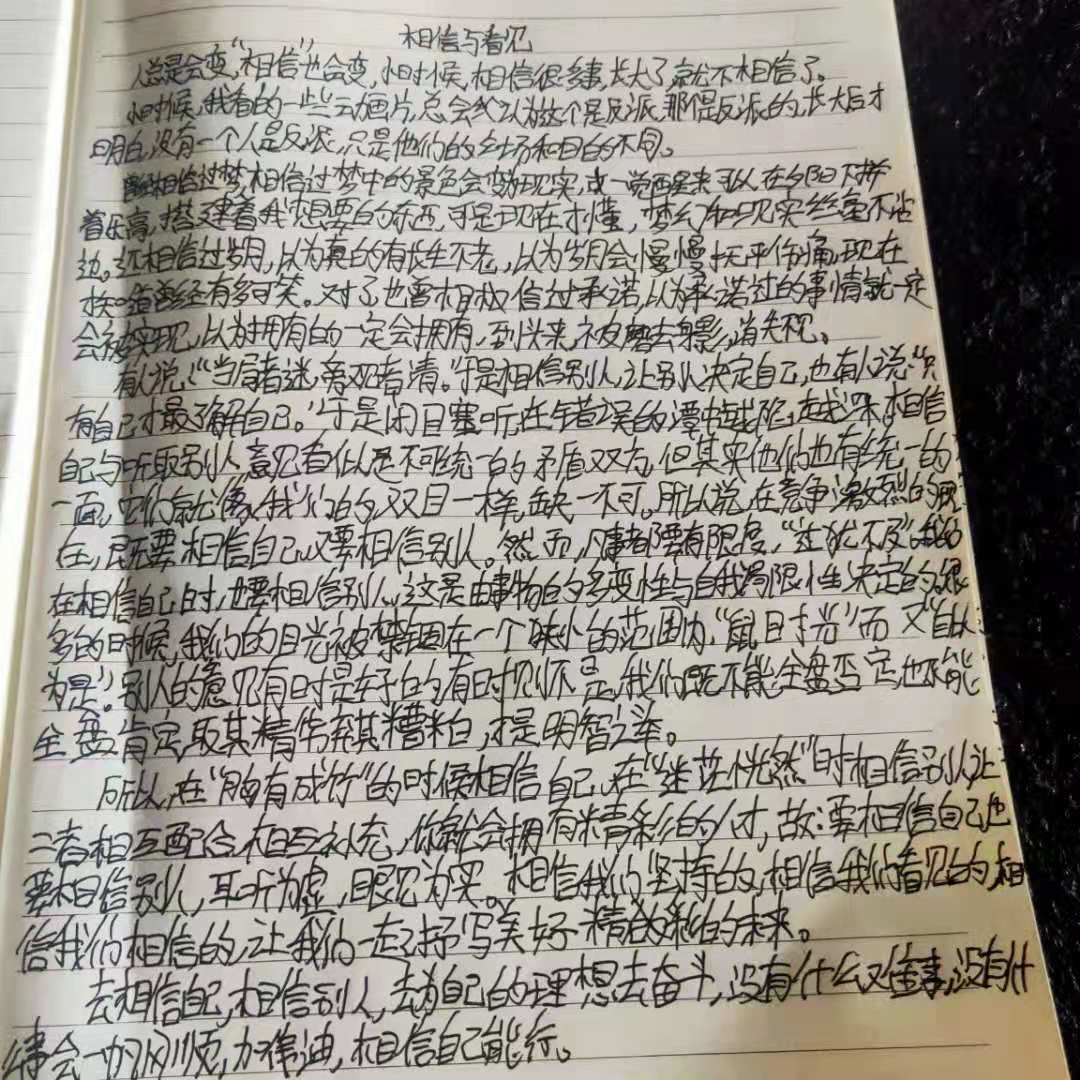 相信与看见
人总是会变,“相信”也会变,小时候,相信很多事,长大了,就不相信了。
小时候,我看的一些动画片,总会以为这个是反派,那个是反派的,长大后才
明白,没有一个人是反派,只是他们的立场和目的不同。
曾经相信过梦,相信过梦中的景色会变为现实,或一觉醒来可以在夕阳下拼
着乐高,搭建着我想要的东西,可是现在才懂,梦幻和现实丝毫不沾
边。还相信过岁月,以为真的有长生不老,以为岁月会慢慢抚平伤痛,现在
才知道曾经有多可笑。对了,也曾相信过承诺,以为承诺过的事情就一定
会被实现,以为拥有的一定会拥有,到头来,被磨去身影,消失不见。
有人说,“当局者迷,旁观者清。”于是相信别人,让别人决定自己,也有人说“只
有自己才最了解自己。”于是闭目塞听,在错误的潭中越陷越深。相信
自己与听取别人意见看似是不可统一的矛盾双方,但其实他们也有统一的
一面,它们就像我们的双目一样,缺一不可。所以说,在竞争激烈的现
在,既要相信自己又要相信别人。然而,凡事都要有限度,“过犹不及”我们
在相信自己时,也要相信别人,这是由事物的多变性与自我局限性决定的,很
多的时候,我们的目光被禁锢在一个狭小的范围内,“鼠目寸光”而又“自以
为是”。别人的意见有时是好的,有时则不是,我们既不能全盘否定,也不能
全盘肯定,取其精华,弃其糟粕,才是明智之举。
所以,在“胸有成竹”的时候相信自己,在“迷茫恍然”时相信别人,让
二者相互配合,相互补充,你就会拥有精彩的人生,故:要相信自己也
要相信别人,耳听为虚,眼见为实。相信我们坚持的,相信我们看见的,相
信我们相信的,让我们一起抒写美好精彩的未来。
去相信自己,相信别人,去为自己的理想去奋斗,没有什么难事,没有什
事会一帆风顺,加油,相信自己能行。